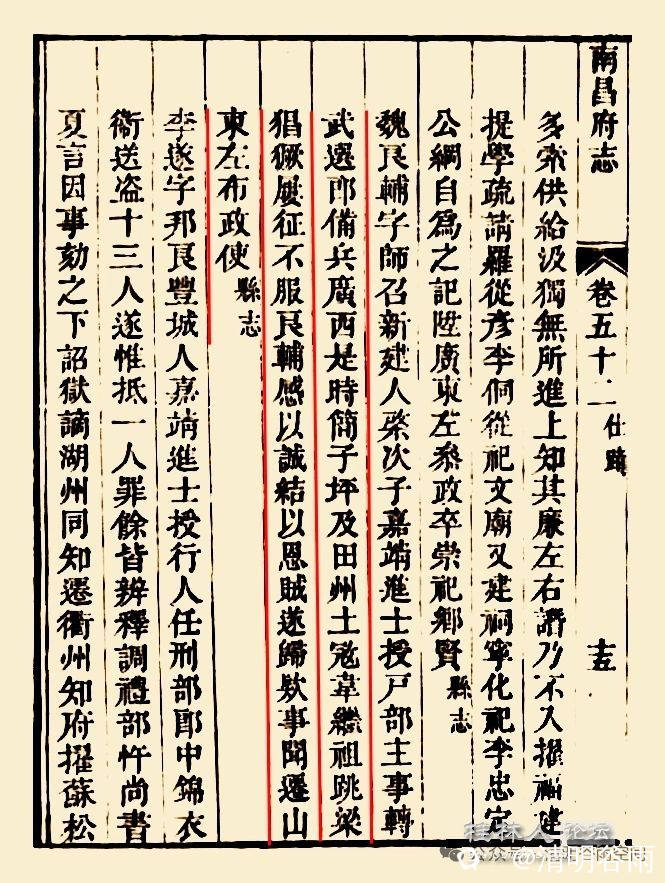 南昌府志 卷五十二 仕蹟 十五
多索供給汲獨無所進上知其廉左右譖乃不入擢福建
提學疏請羅從彥李侗從祀文廟又建祠寧化祀李忠定
公綱自爲之記陞廣東左參政卒崇祀鄉賢 縣志
魏良輔字師召新建人榮次子嘉靖進士授戶部主事轉
武選郎備兵廣西是時簡子坪及田州土寇韋繼祖跳梁
猖獗屢征不服良輔感以誠結以恩賊遂歸欵事聞遷山
東左布政使 縣志
李遂字邦良豐城人嘉靖進士授行人任刑部郎中錦衣
衞送盗十三人遂惟抵一人罪餘皆辨釋調禮部忤尚書
夏言因事劾之下詔獄謫湖州同知遷衢州知府擢蘇松
桂林人论坛
公众号
@清明谷雨